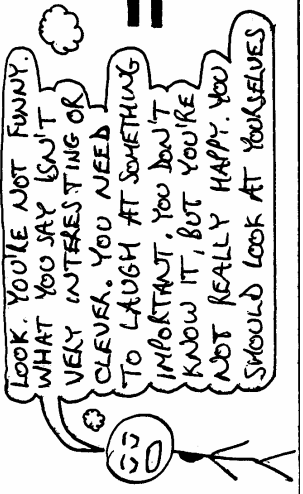 LOOK. YOU'RE NOT FUNNY.
WHAT YOU SAY ISN'T
VERY INTERESTING OR
CLEVER. YOU NEED
TO LAUGH AT SOMETHING
IMPORTANT. YOU DON'T
KNOW IT, BUT YOU'RE
NOT REALLY HAPPY. YOU
SHOULD LOOK AT YOURSELVES